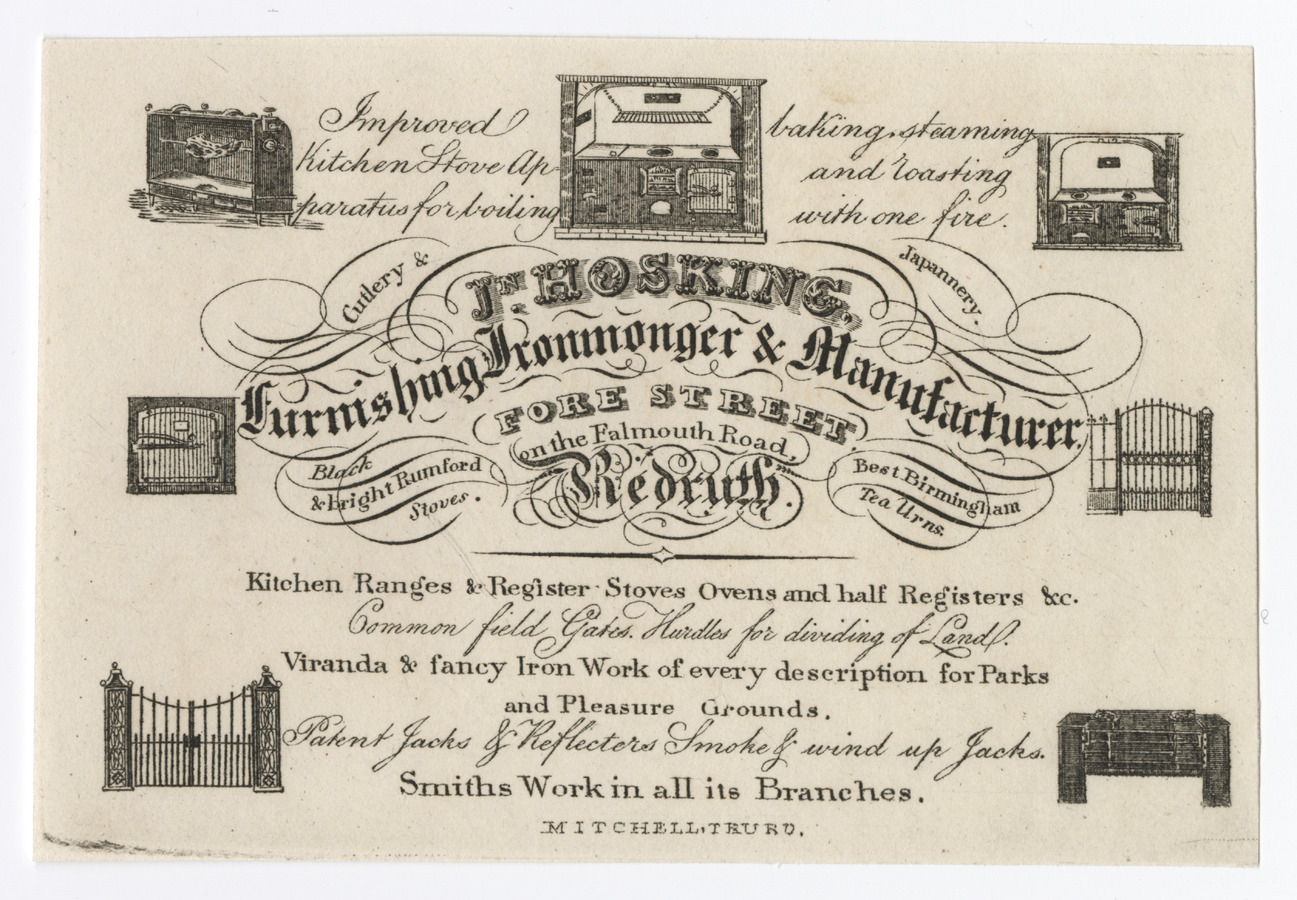 Improved
Kitchen Stove Ap-
paratus for boiling
baking, steaming
and roasting
with one fire.
Cutlery &
Japannery.
Jn. HOSKING,
Furnishing Ironmonger & Manufacturer,
FORE STREET,
on the Falmouth Road,
Redruth.
Black
& bright Rumford
Stoves.
Best Birmingham
Tea Urns.
Kitchen Ranges & Register Stoves Ovens and half Registers &c.
Common field Gates. Hurdles for dividing of Land.
Viranda & fancy Iron Work of every description for Parks
and Pleasure Grounds.
Patent Jacks & Reflecters Smoke & wind up Jacks.
Smiths Work in all its Branches.
MITCHELL, TRURO.